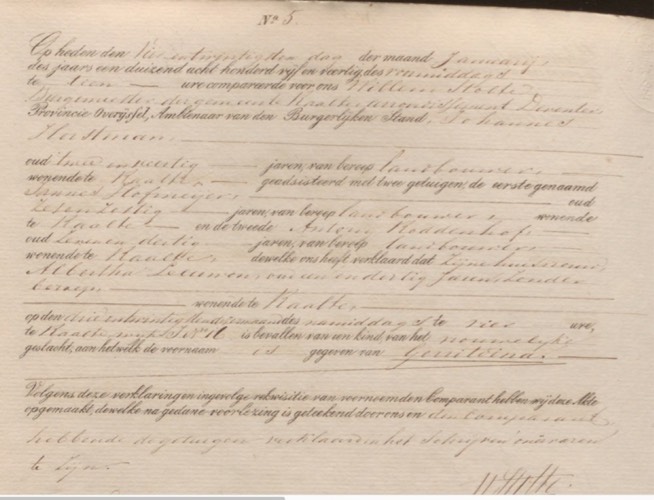 No 5.
Op heden den Vier en twintigsten dag der maand Januarij
des jaars een duizend acht honderd vijf en veertig, des voormiddags
te tien ure compareerde voor ons Willem Stolte
Burgemeester der gemeente Raalte, arrondissement Deventer,
Provincie Overijssel, Ambtenaar van den Burgerlijken Stand, Johannes
Horstman,
oud twee en veertig jaren, van beroep landbouwer
wonende te Raalte, geadsisteerd met twee getuigen, de eerste genaamd
Hofmeyer oud
Zes en zestig jaren, van beroep landbouwer, wonende
te Raalte en de tweede Antony Roddenhof
oud Zeven en dertig jaren, van beroep landbouwer
wonende te Raalte, dewelke ons heeft verklaard dat Zijne huisvrouw
Albertha Leeuwen, oud een en dertig Jaren, zonder
beroep wonende te Raalte,
op den drie en twintigsten dezer maand des namiddags te vier ure,
te Raalte, wijk is bevallen van een kind, van het vrouwelijke
geslacht, aan hetwelk de voornaam is gegeven van Gerritdina.
Volgens deze verklaringen ingevolge rekwisitie van voornoemden Comparant hebben wij deze Akte
opgemaakt, dewelke na gedane voorlezing is geteekend door ons en den Comparant,
hebbende de getuigen verklaard het schrijven onervaren
te Zijn.
W Stolte